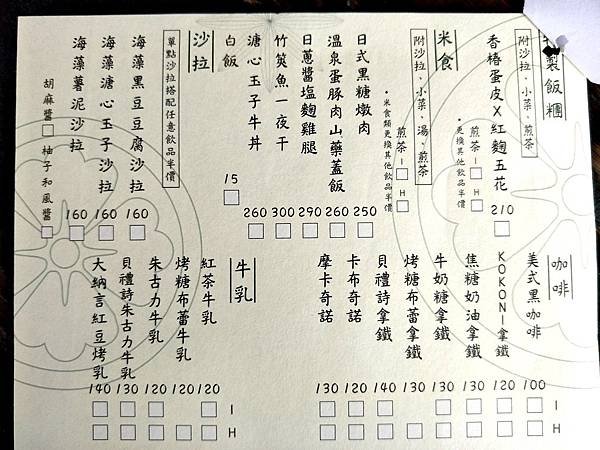 製飯糰
附沙拉、小菜、煎茶
香椿蛋皮X紅麴五花 210
煎茶 I H
*更換其他飲品半價
米食
附沙拉、小菜、湯、煎茶
煎茶 I H
*米食類更換其他飲品半價
日式黑糖燉肉 250
溫泉蛋豚肉山藥蓋飯 260
日蔥醬塩麴雞腿 290
竹筴魚一夜干 300
溏心玉子牛丼 260
白飯 15
沙拉
單點沙拉搭配任意飲品半價
海藻黑豆豆腐沙拉 160
海藻溏心玉子沙拉 160
海藻薯泥沙拉 160
胡麻醬 柚子和風醬
咖啡
美式黑咖啡 100
KOKONI拿鐵 120
焦糖奶油拿鐵 130
牛奶糖拿鐵 130
烤糖布蕾拿鐵 130
貝禮詩拿鐵 140
卡布奇諾 120
摩卡奇諾 130
I
H
牛乳
紅茶牛乳 120
烤糖布蕾牛乳 120
朱古力牛乳 120
貝禮詩朱古力牛乳 130
大納言紅豆烤乳 140
I
H